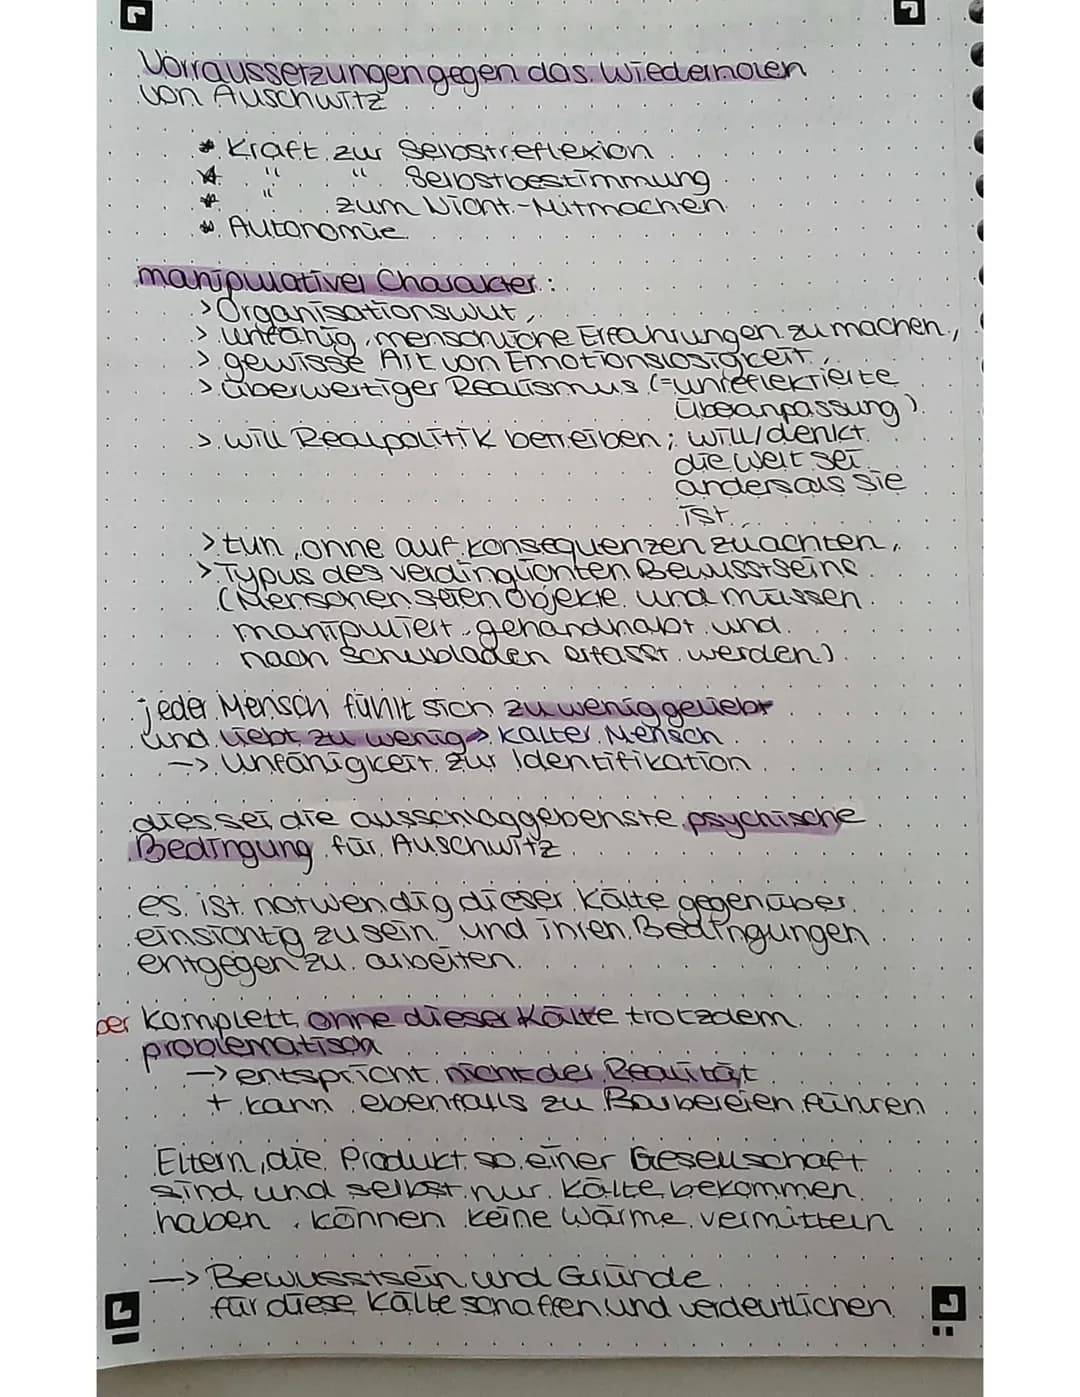 Vorraussetzungen gegen das Wiederholen
von Auschwitz
* Kraft zur Selbstreflexion
* " " Selbstbestimmung
* " zum Nicht-Mitmachen
* Autonomie
manipulativer Charakter:
> Organisationswut,
> unfähig, menschliche Erfahrungen zu machen,
> gewisse Art von Emotionslosigkeit,
> überwertiger Realismus (=unreflektierte
Übeanpassung)
> will Realpolitik betreiben; will/denkt
die Welt sei
anders als sie
ist
> tun, ohne auf Konsequenzen zu achten,
> Typus des verdinglichten Bewusstseins
(Menschen seien Objekte und müssen
manipuliert, gehandhabt und
nach Schubladen erfasst werden)
jeder Mensch fühlt sich zu wenig geliebt
und liebt zu wenig -> kalter Mensch
-> Unfähigkeit zur Identifikation
dies sei die ausschlaggebenste psychische
Bedingung für Auschwitz
es ist notwendig dieser Kälte gegenüber
einsichtig zu sein und ihren Bedingungen
entgegen zu arbeiten.
ber komplett ohne dieser Kälte trotzdem
problematisch
-> entspricht nicht der Realität
+ kann ebenfalls zu Barbereien führen
Eltern, die Produkt so einer Gesellschaft
sind und selbst nur Kälte bekommen
haben, können keine Wärme vermitteln
-> Bewusstsein und Gründe
für diese Kälte schaffen und verdeutlichen